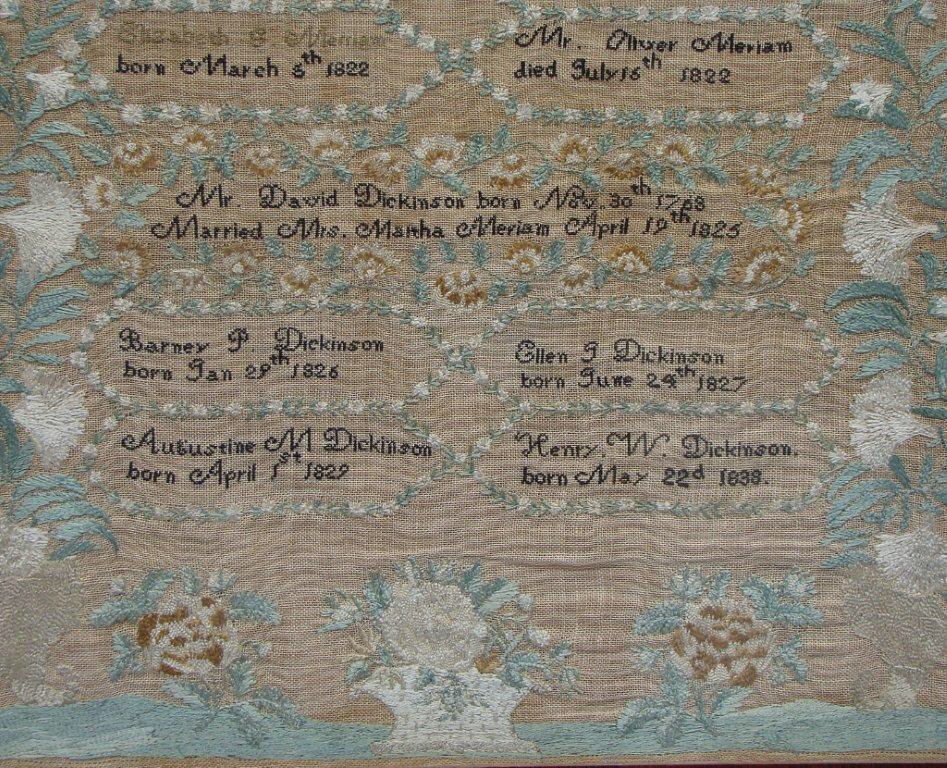 Elizabeth S. Meriam
born March 8th 1822
Mr. Oliver Meriam
died July 16th 1822
Mr. David Dickinson born Nov. 30th 1768
Married Mrs. Martha Meriam April 19th 1825
Barney P. Dickinson
born Jan 29th 1826
Ellen J Dickinson
born June 24th 1827
Augustine M Dickinson
born April 1st 1829
Henry. W. Dickinson.
born May 22d 1838.